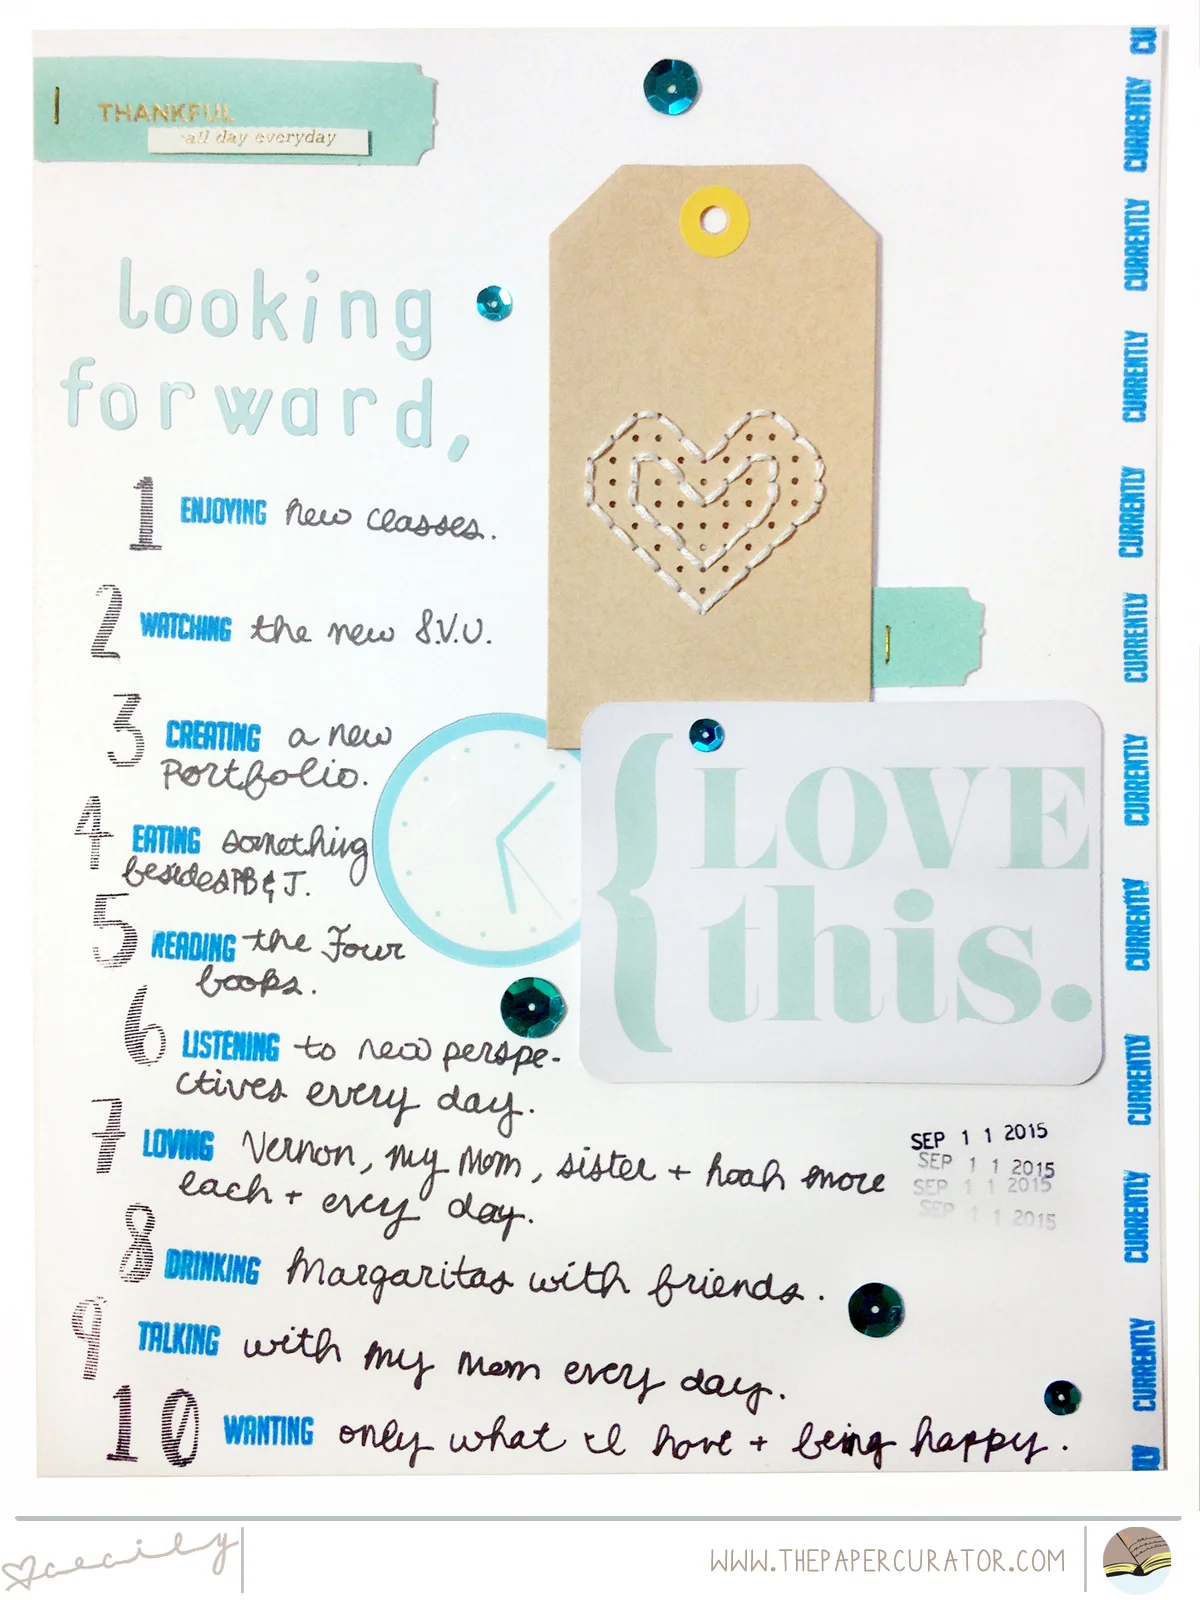 THANKFUL
all day everyday
looking
forward,
1 ENJOYING new classes.
2 WATCHING the new S.V.U.
3 CREATING a new
portfolio.
4 EATING something
besides PB & J.
5 READING the Four
books.
6 LISTENING to new perspe-
ctives every day.
7 LOVING Vernon, my mom, sister + noah more
each + every day.
8 DRINKING Margaritas with friends.
9 TALKING with my mom every day.
10 WANTING only what I have + being happy.
{LOVE
this.
SEP 1 1 2015
SEP 1 1 2015
SEP 1 1 2015
SEP 1 1 2015
CU
CURRENTLY
CURRENTLY
CURRENTLY
CURRENTLY
CURRENTLY
CURRENTLY
CURRENTLY
CURRENTLY
CURRENTLY
CURRENTLY
LY
cecily
WWW.THEPAPERCURATOR.COM